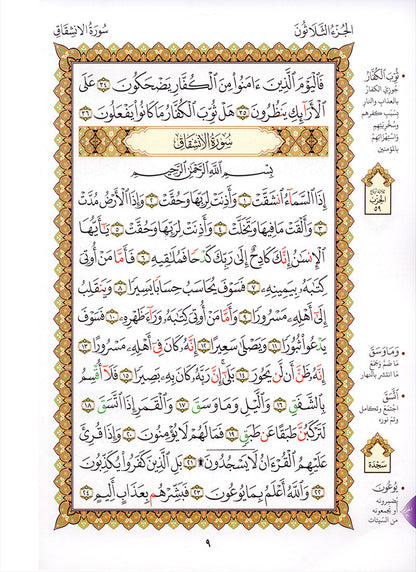 الجُزءُ الثَّلَاثُونَ
سُورَةُ الانشِقَاقِ
فَالْيَوْمَ الَّذِينَ ءَامَنُوا۟ مِنَ الْكُفَّارِ يَضْحَكُونَ ٣٤ عَلَى
الْأَرَآئِكِ يَنظُرُونَ ٣٥ هَلْ ثُوِّبَ الْكُفَّارُ مَا كَانُوا۟ يَفْعَلُونَ ٣٦
سُورَةُ الانشِقَاقِ
بِسْمِ اللَّهِ الرَّحْمَٰنِ الرَّحِيمِ
إِذَا السَّمَآءُ انشَقَّتْ ١ وَأَذِنَتْ لِرَبِّهَا وَحُقَّتْ ٢ وَإِذَا الْأَرْضُ مُدَّتْ
٣ وَأَلْقَتْ مَا فِيهَا وَتَخَلَّتْ ٤ وَأَذِنَتْ لِرَبِّهَا وَحُقَّتْ ٥ يَٰٓأَيُّهَا
الْإِنسَٰنُ إِنَّكَ كَادِحٌ إِلَىٰ رَبِّكَ كَدْحًا فَمُلَٰقِيهِ ٦ فَأَمَّا مَنْ أُوتِىَ
كِتَٰبَهُۥ بِيَمِينِهِۦ ٧ فَسَوْفَ يُحَاسَبُ حِسَابًا يَسِيرًا ٨ وَيَنقَلِبُ
إِلَىٰٓ أَهْلِهِۦ مَسْرُورًا ٩ وَأَمَّا مَنْ أُوتِىَ كِتَٰبَهُۥ وَرَآءَ ظَهْرِهِۦ ١٠ فَسَوْفَ
يَدْعُوا۟ ثُبُورًا ١١ وَيَصْلَىٰ سَعِيرًا ١٢ إِنَّهُۥ كَانَ فِىٓ أَهْلِهِۦ مَسْرُورًا ١٣
إِنَّهُۥ ظَنَّ أَن لَّن يَحُورَ ١٤ بَلَىٰٓ إِنَّ رَبَّهُۥ كَانَ بِهِۦ بَصِيرًا ١٥ فَلَآ أُقْسِمُ
بِالشَّفَقِ ١٦ وَالَّيْلِ وَمَا وَسَقَ ١٧ وَالْقَمَرِ إِذَا اتَّسَقَ ١٨
لَتَرْكَبُنَّ طَبَقًا عَن طَبَقٍ ١٩ فَمَا لَهُمْ لَا يُؤْمِنُونَ ٢٠ وَإِذَا قُرِئَ
عَلَيْهِمُ الْقُرْءَانُ لَا يَسْجُدُونَ ۩ ٢١ بَلِ الَّذِينَ كَفَرُوا۟ يُكَذِّبُونَ
٢٢ وَاللَّهُ أَعْلَمُ بِمَا يُوعُونَ ٢٣ فَبَشِّرْهُم بِعَذَابٍ أَلِيمٍ ٢٤
• ثُوِّبَ الْكُفَّارُ
جُوزِيَ الكفارُ
بِالعذابِ والنارِ
بِسَبَبِ كفرِهم
وسُخْرِيَتِهم
واستِهْزائِهم
بالمؤمنين
الحزب
٥٩
• وَمَا وَسَقَ
ما ضمَّ وجَمَعَ
ما انتشر بالنهار
• اتَّسَقَ
اجتمعَ وتكامل
وتمَّ نوره
سَجْدَة
• يُوعُونَ
يُضمِرونه
أو يجمعونه
من السيئات
٩